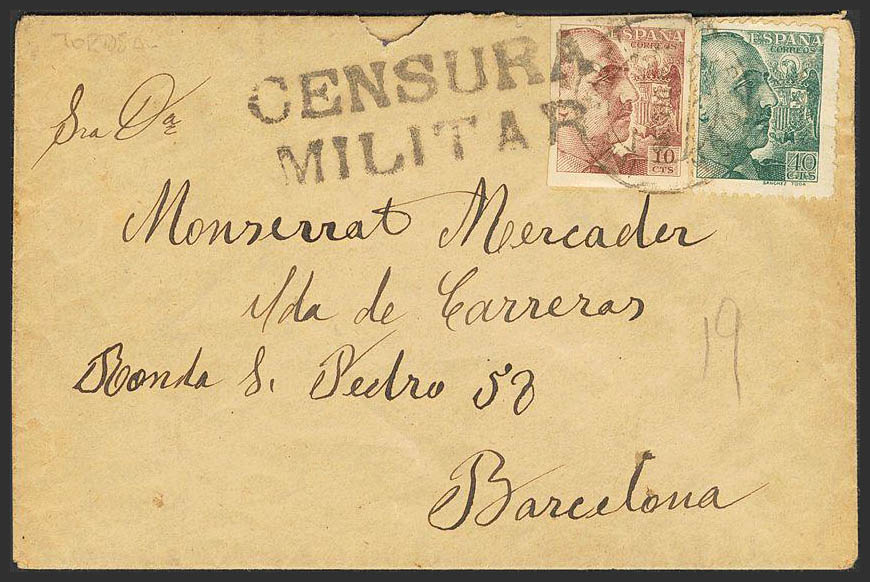 TORTOSA
CENSURA
MILITAR
ESPAÑA
CORREOS
10
CTS
ESPAÑA
CORREOS
40
CTS
SANCHEZ TODA
Sra Dª
Monserrat Mercader
Vda de Carreras
Ronda S. Pedro 58
Barcelona
19